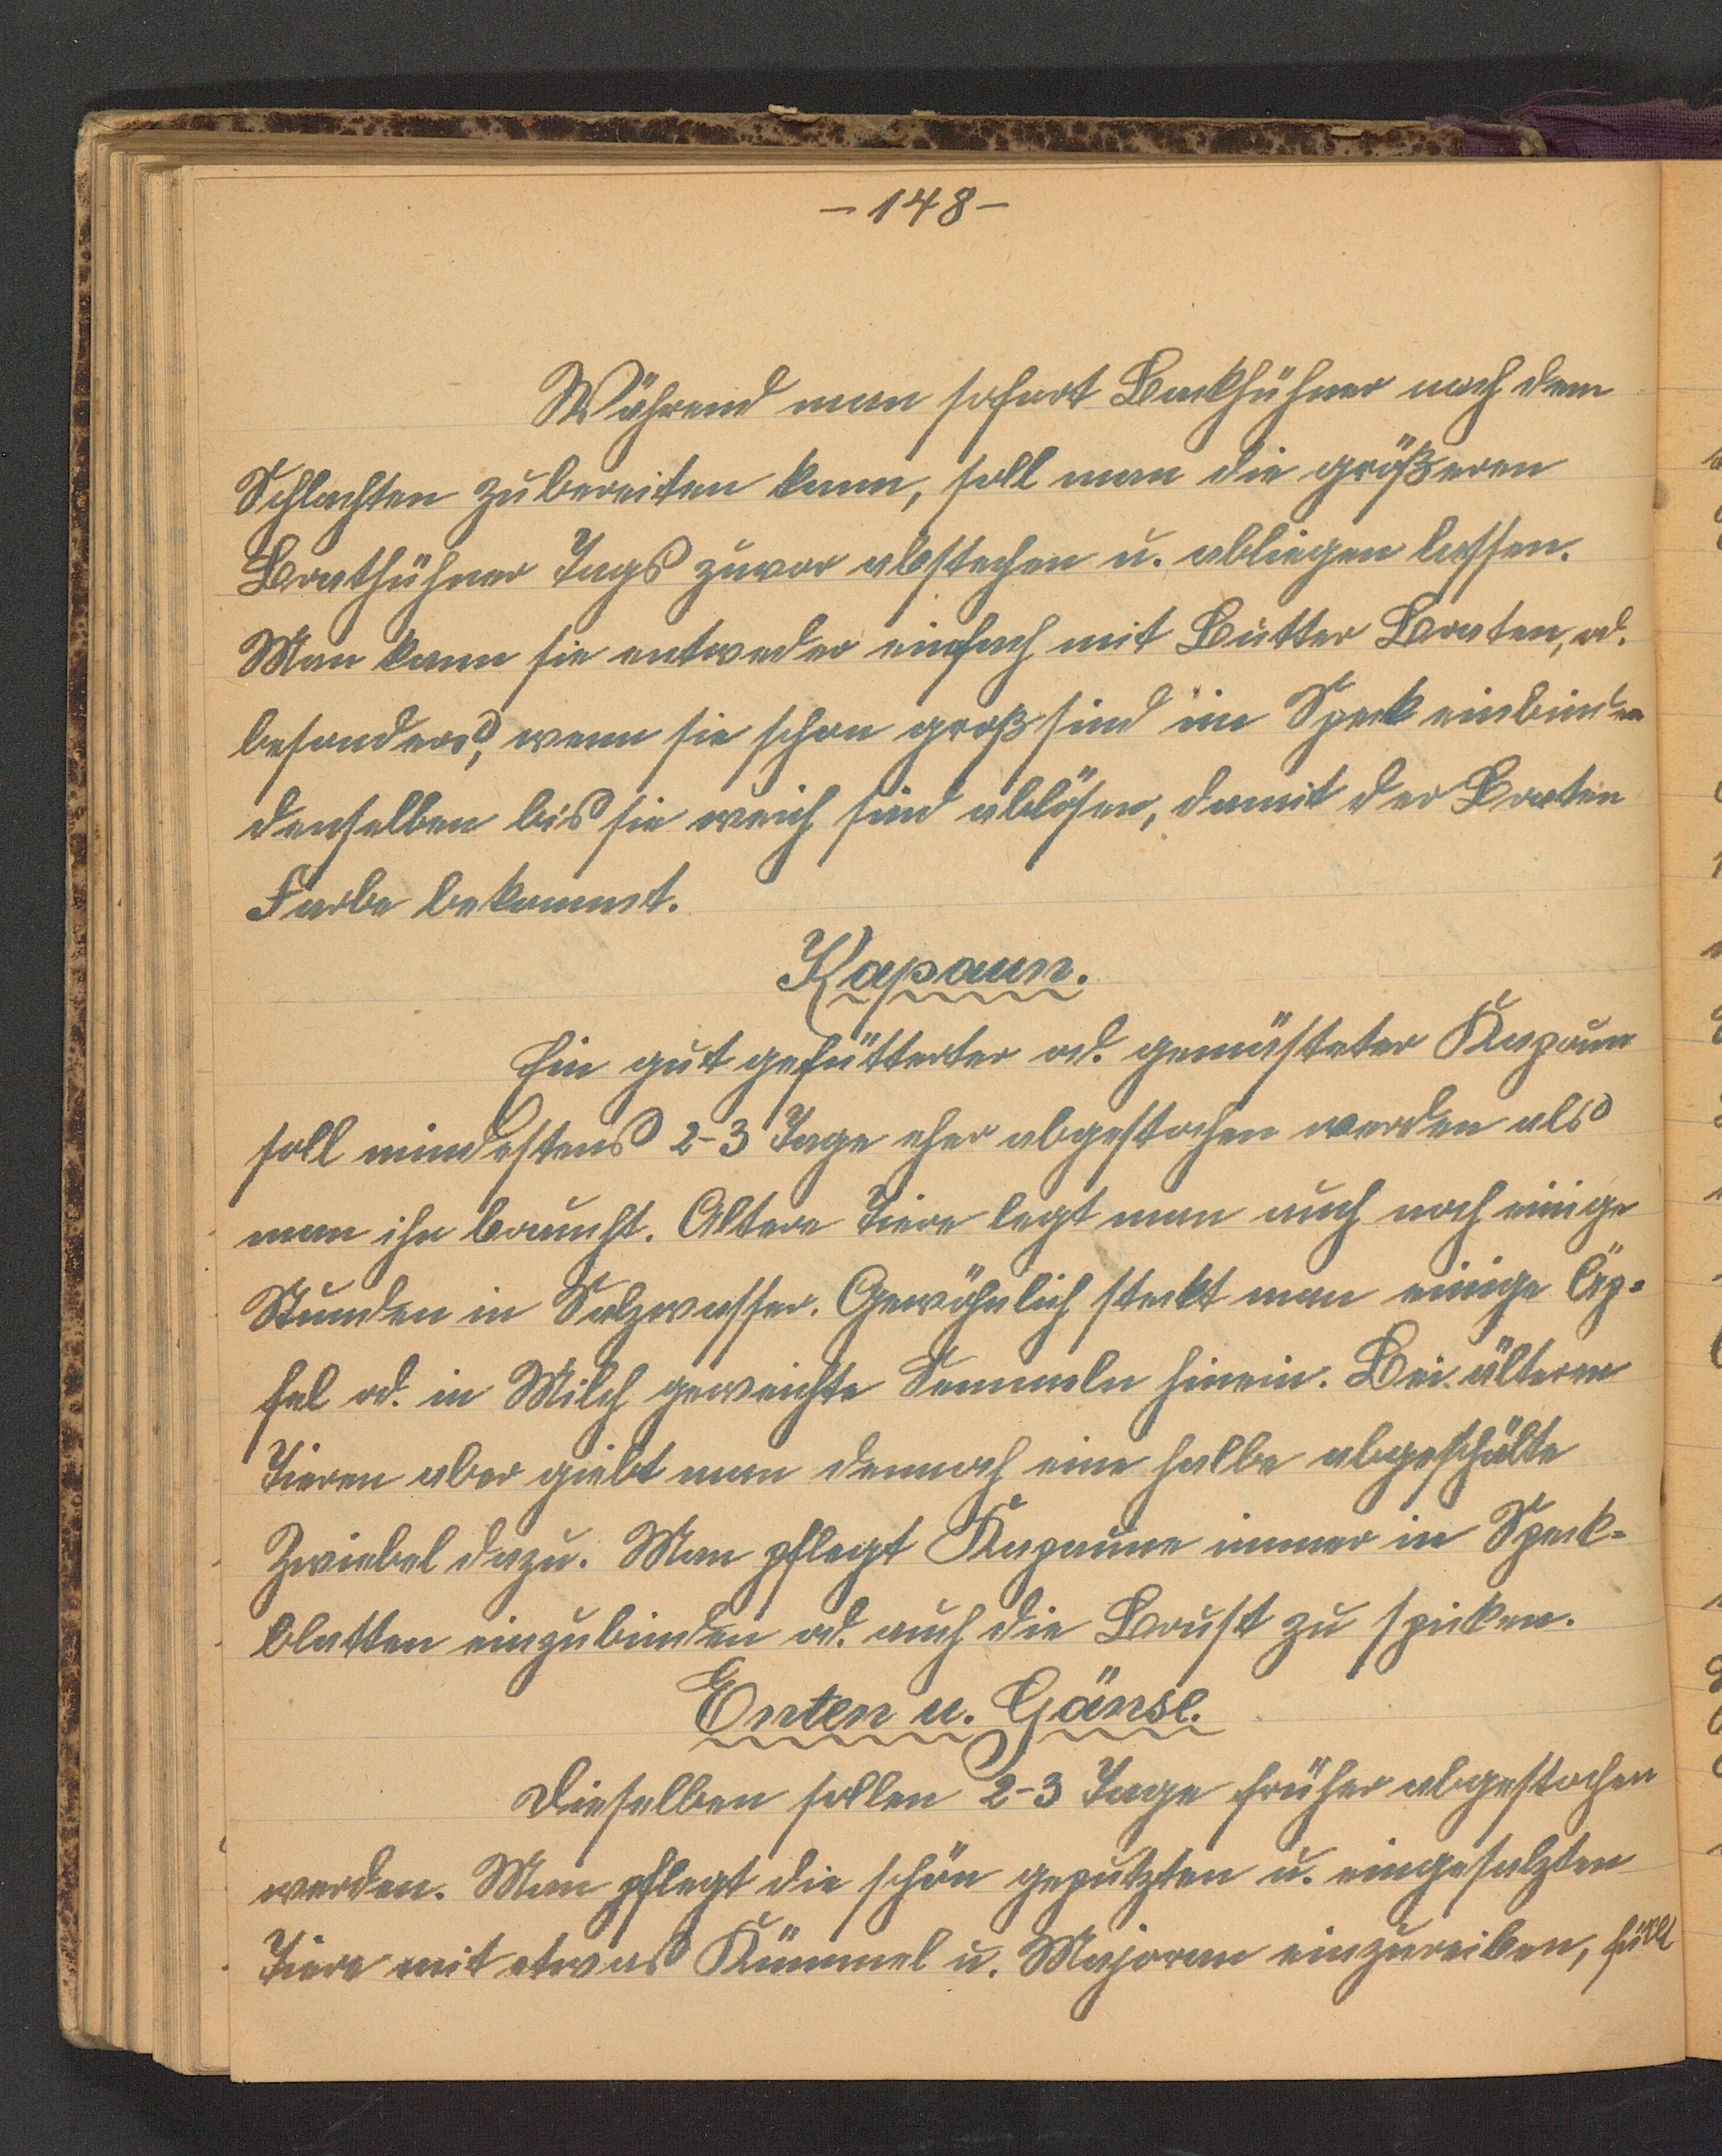 - 148 -
Während man sofort Backhühner nach dem
Schlachten zubereiten kann, soll man die größeren
Brathühner Tags zuvor abstechen u. abliegen lassen.
Man kann sie entweder einfach mit Butter Braten, od.
besonders, wenn sie schon groß sind in Speck einbinden
denselben bis sie weich sind ablösen, damit der Braten
Farbe bekommt.
Kapaun.
Ein gut gefütterter od. gemästeter Kapaun
soll mindestens 2-3 Tage eher abgestochen werden als
man ihn braucht. Altere Tiere legt man auch noch einige
Stunden in Salzwasser. Gewöhnlich steckt man einige Äp-
fel od. in Milch geweichte Semmeln hinein. Bei älteren
Tieren aber giebt man dennoch eine halbe abgeschälte
Zwiebel dazu. Man pflegt Kapaune immer in Speck-
blatten einzubinden od. auch die Brust zu spicken.
Enten u. Gänse.
Dieselben sollen 2-3 Tage früher abgestochen
werden. Man pflegt die schön geputzten u. eingesalzten
Tiere mit etwas Kümmel u. Majoran einzureiben, füllt